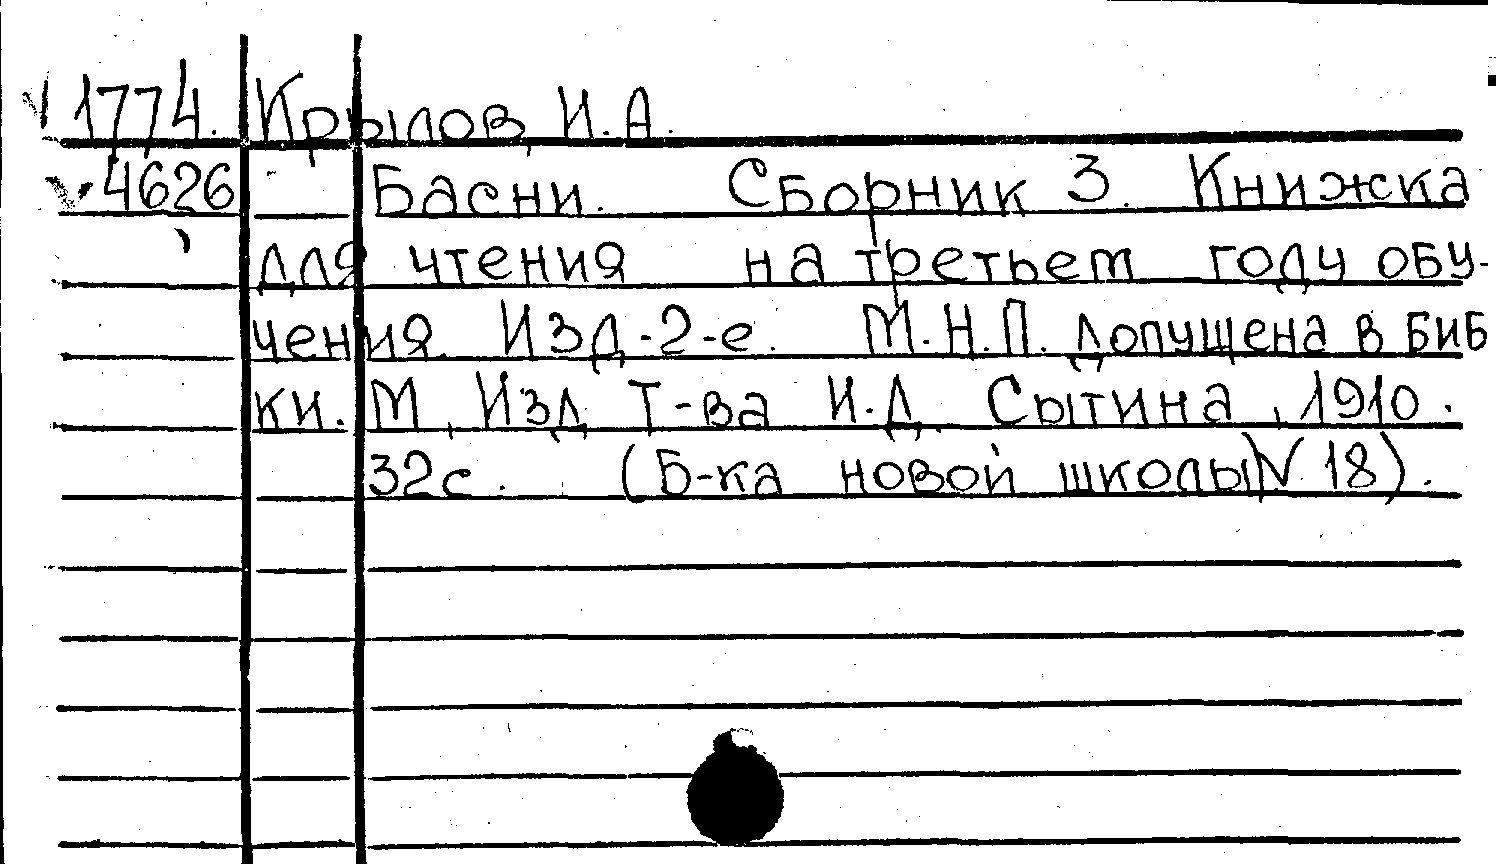 1774. Крылов, И.А.
4626 Басни. Сборник 3. Книжка
для чтения на третьем году обу-
чения. Изд-2-е. М.Н.П. допущена в биб
ки. М., Изд. Т-ва И.Д. Сытина, 1910.
32с. (Б-ка новой школы N 18).